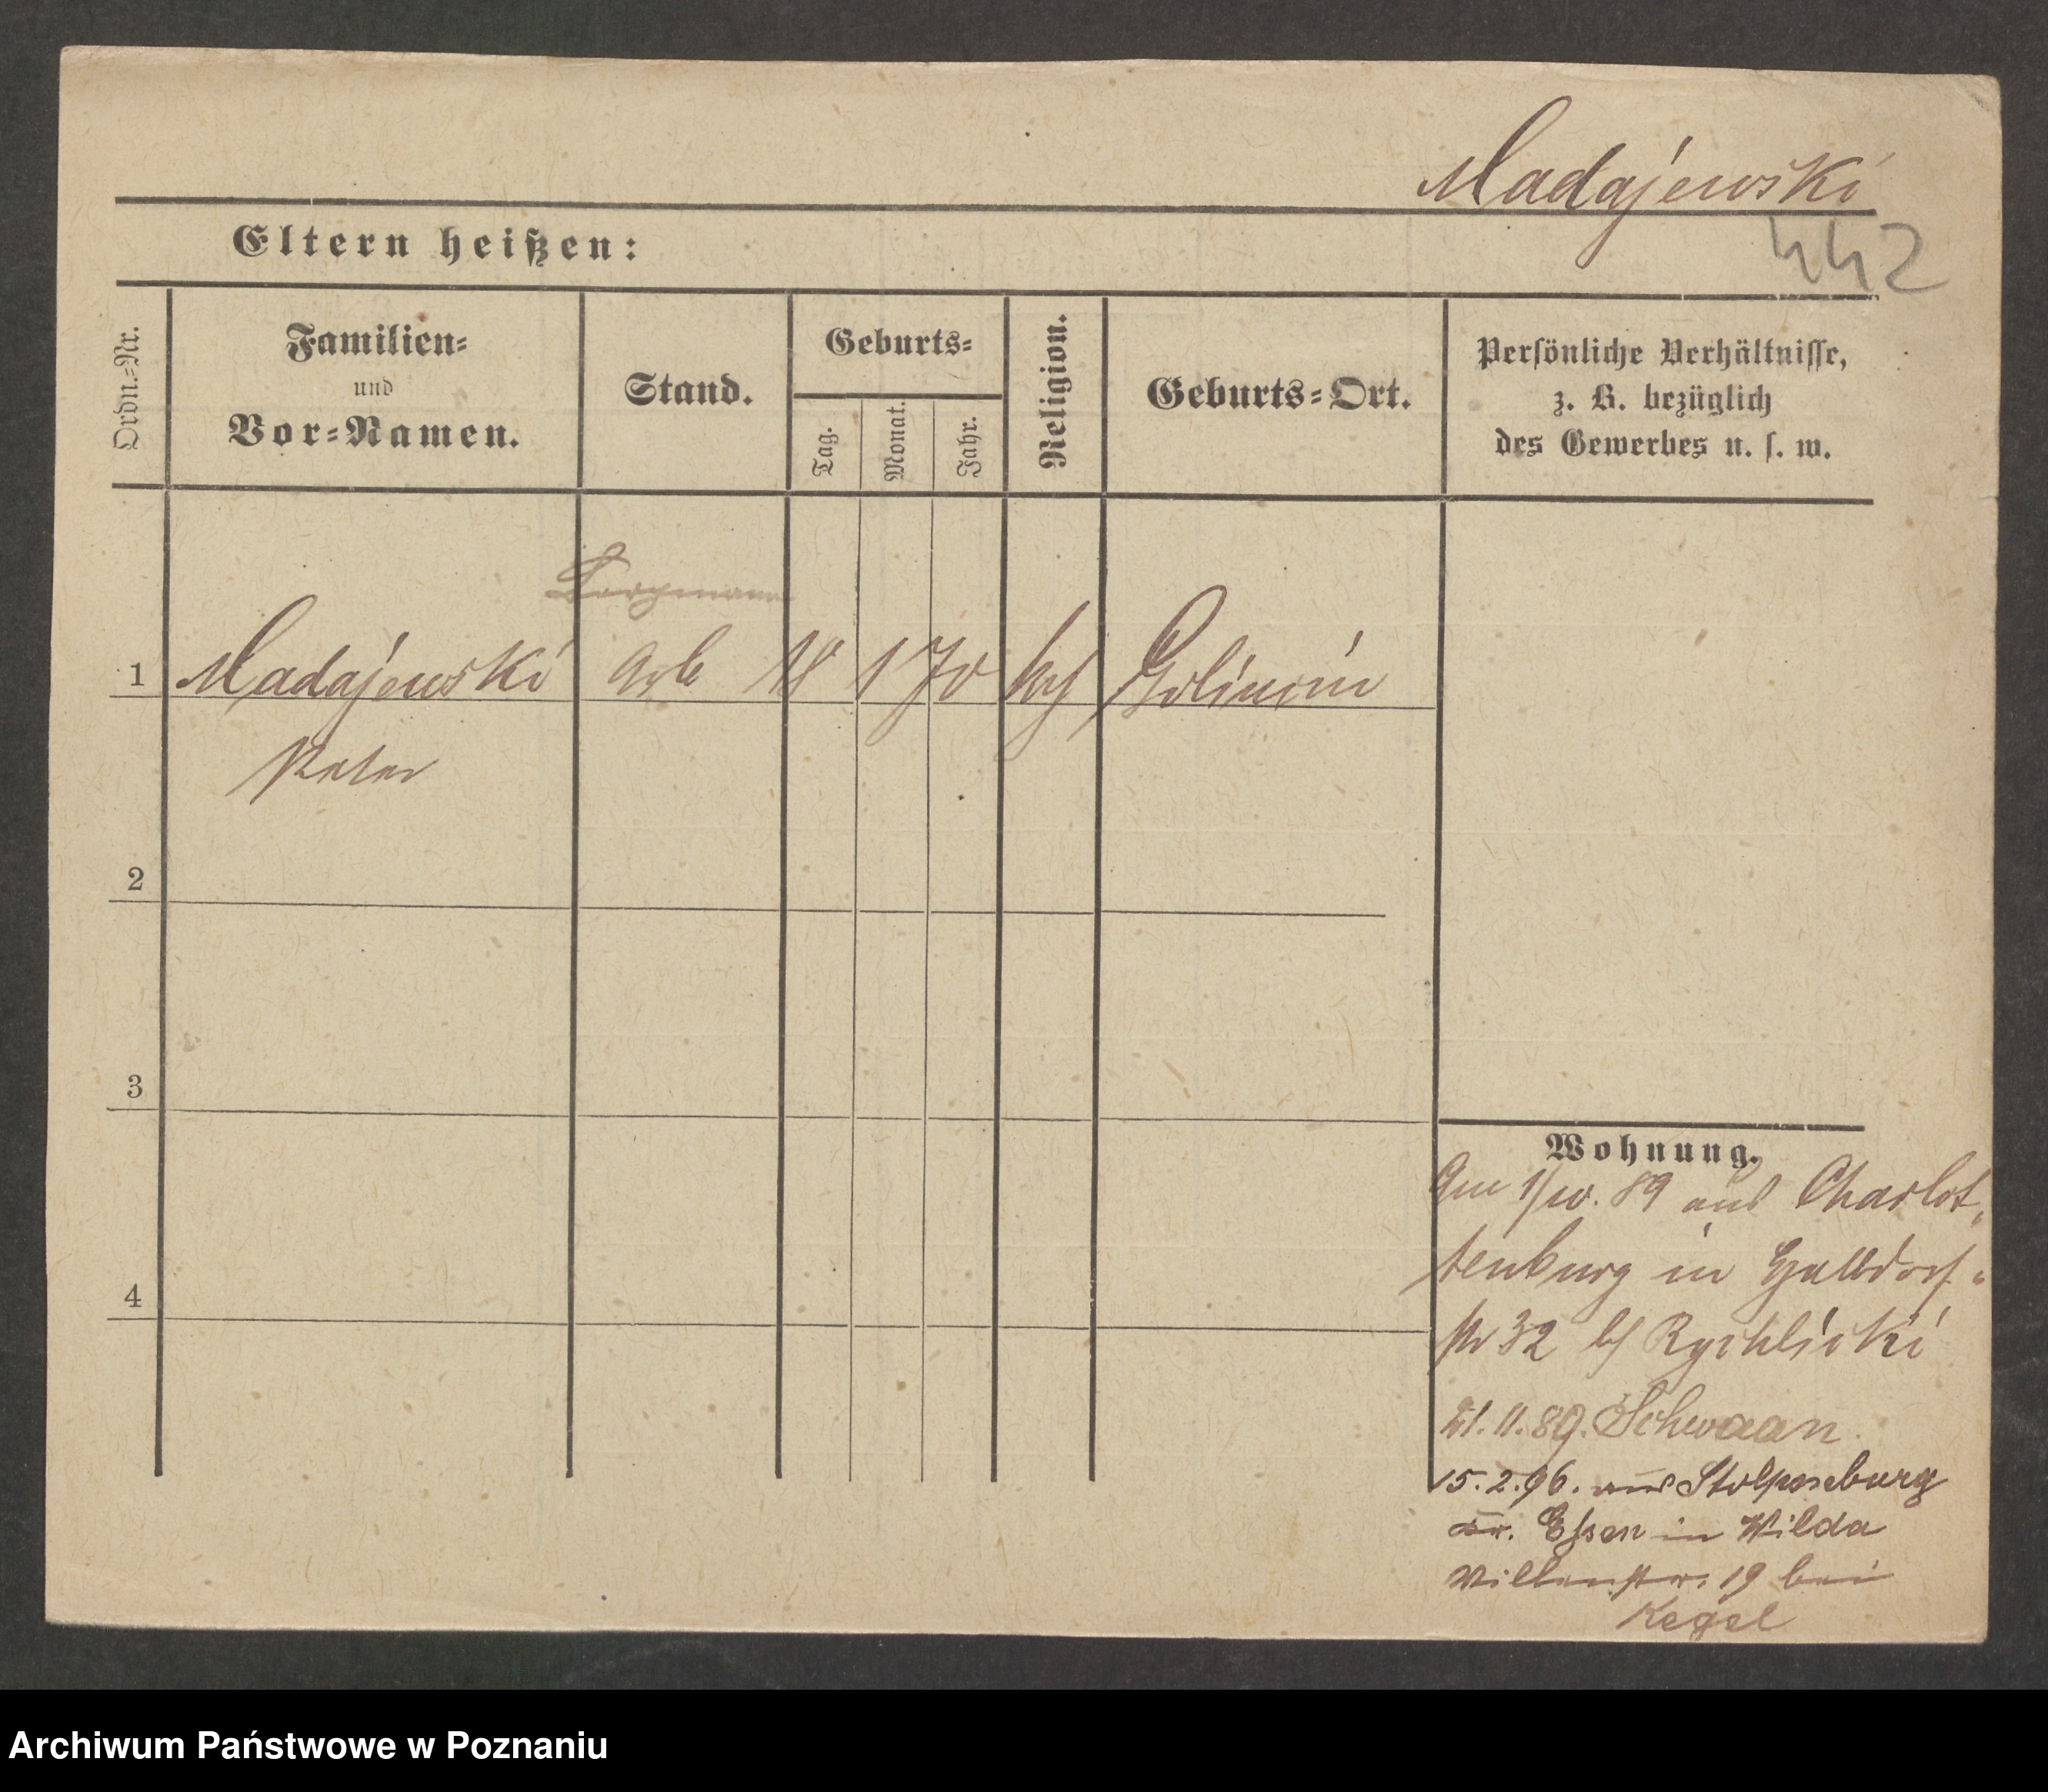 Madajewski
442
Eltern heißen:
Ordn.-Nr.
Familien-
und
Vor-Namen.
Stand.
Geburts-
Tag.
Monat.
Jahr.
Religion.
Geburts-Ort.
Persönliche Verhältnisse,
z. B. bezüglich
des Gewerbes u. s. w.
Bergmann
1 Madajewski Arb 18 1 70 kth
Peter
2
3
4
Wohnung.
Am 1/10. 89 aus Charlot„
tenburg in Halbdorf„
str 32 bei Rychlicki
21.11.89. Schwaan.
15.2.96. aus
Kr. Essen in Wilda
Villenstr. 19 bei
Kegel
Archiwum Państwowe w Poznaniu